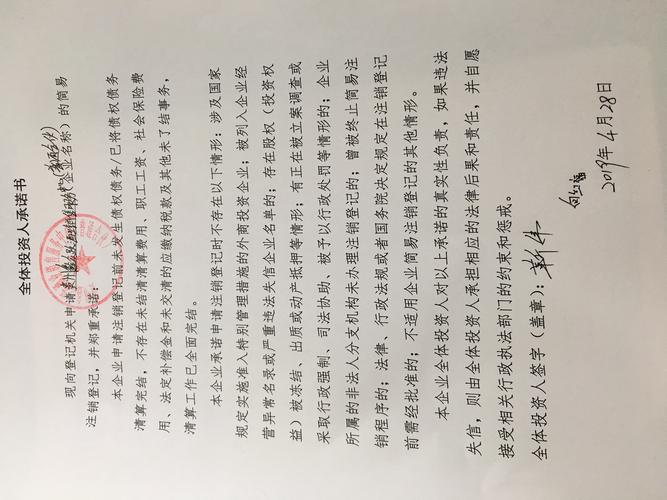 全体投资人承诺书
现向登记机关申请(企业名称)的简易
注销登记，并郑重承诺：
本企业申请注销登记前未发生债权债务/已将债权债务
清算完结，不存在未结清清算费用、职工工资、社会保险费
用、法定补偿金和未交清的应缴纳税款及其他未了结事务，
清算工作已全面完结。
本企业承诺申请注销登记时不存在以下情形：涉及国家
规定实施准入特别管理措施的外商投资企业；被列入企业经
营异常名录或严重违法失信企业名单的；存在股权（投资权
益）被冻结、出质或动产抵押等情形；有正在被立案调查或
采取行政强制、司法协助、被予以行政处罚等情形的；企业
所属的非法人分支机构未办理注销登记的；曾被终止简易注
销程序的；法律、行政法规或者国务院决定规定在注销登记
前需经批准的；不适用企业简易注销登记的其他情形。
本企业全体投资人对以上承诺的真实性负责，如果违法
失信，则由全体投资人承担相应的法律后果和责任，并自愿
接受相关行政执法部门的约束和惩戒。
全体投资人签字（盖章）：
2019年4月28日